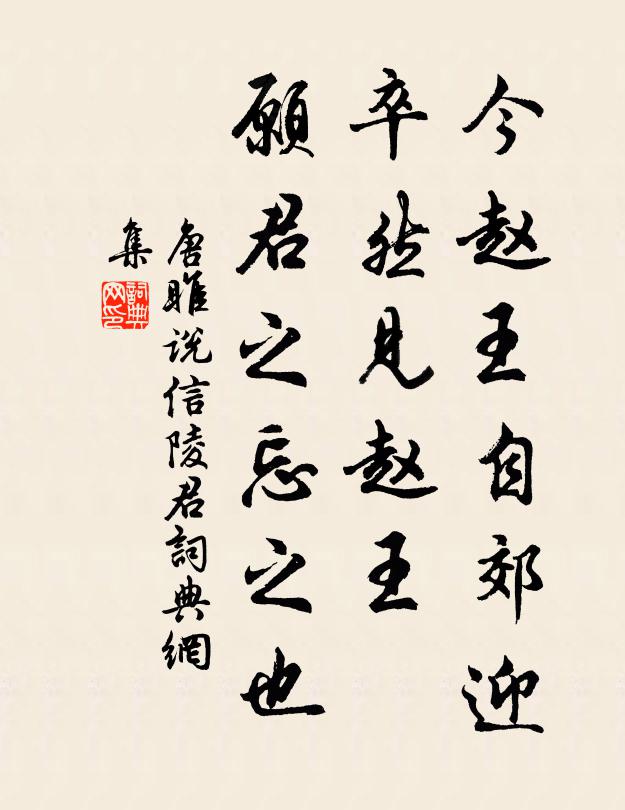 今赵王自郊迎
卒然见赵王
願君之忘之也
唐雎说信陵君詞典網
集
詞典
网印